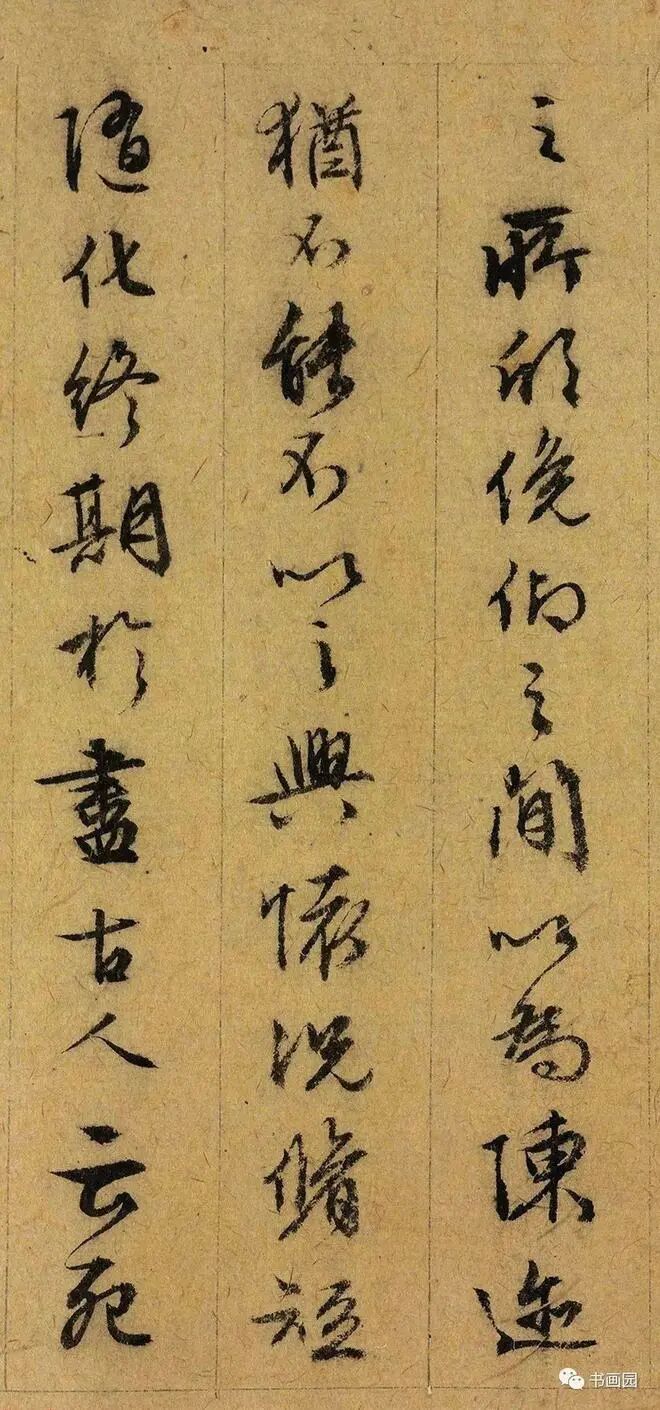 之所欣俛仰之間以為陳迹
猶不能不以之興懷況脩短
隨化終期於盡古人云死
书画园